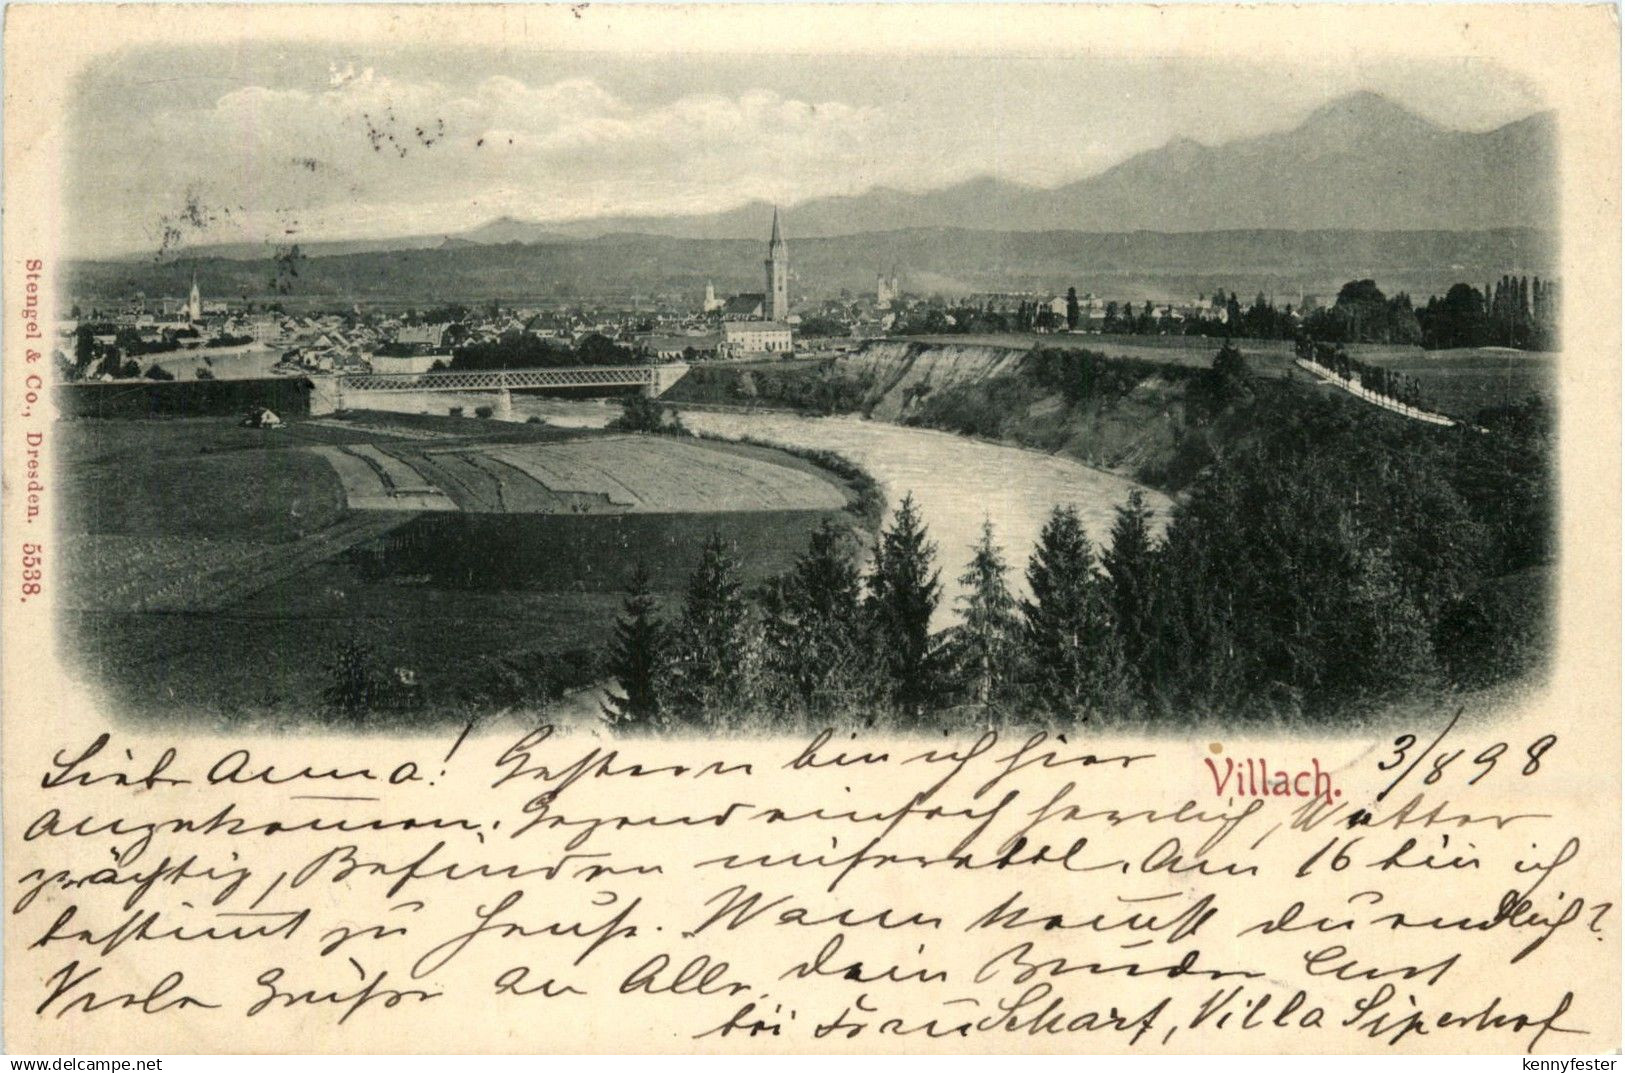 Stengel & Co., Dresden. 5538.
Villach. 3/8 98
Liebe Anna! Gestern bin ich hier
angekommen. Gegend einfach herrlich, Wetter
prächtig, Befinden miserabel. Am 16 bin ich
bestimmt zu Hause. Wann kommst du endlich?
Viele Grüße an Alle. dein Bruder Curt
bei Frau Schart, Villa
delcampe.net
kennyfester